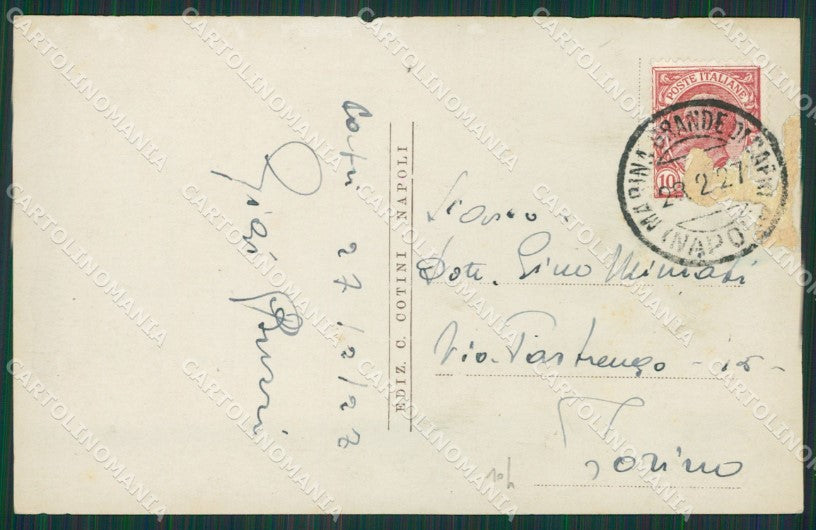 Capri 27/2/27
Gigi
EDIZ. C. COTINI - NAPOLI
POSTE ITALIANE
10
MARINA GRANDE DI CAPRI
28.2.27
(NAPOLI)
Dott. Gino
Via Pastrengo - 15 -
Torino
CARTOLINOMANIA